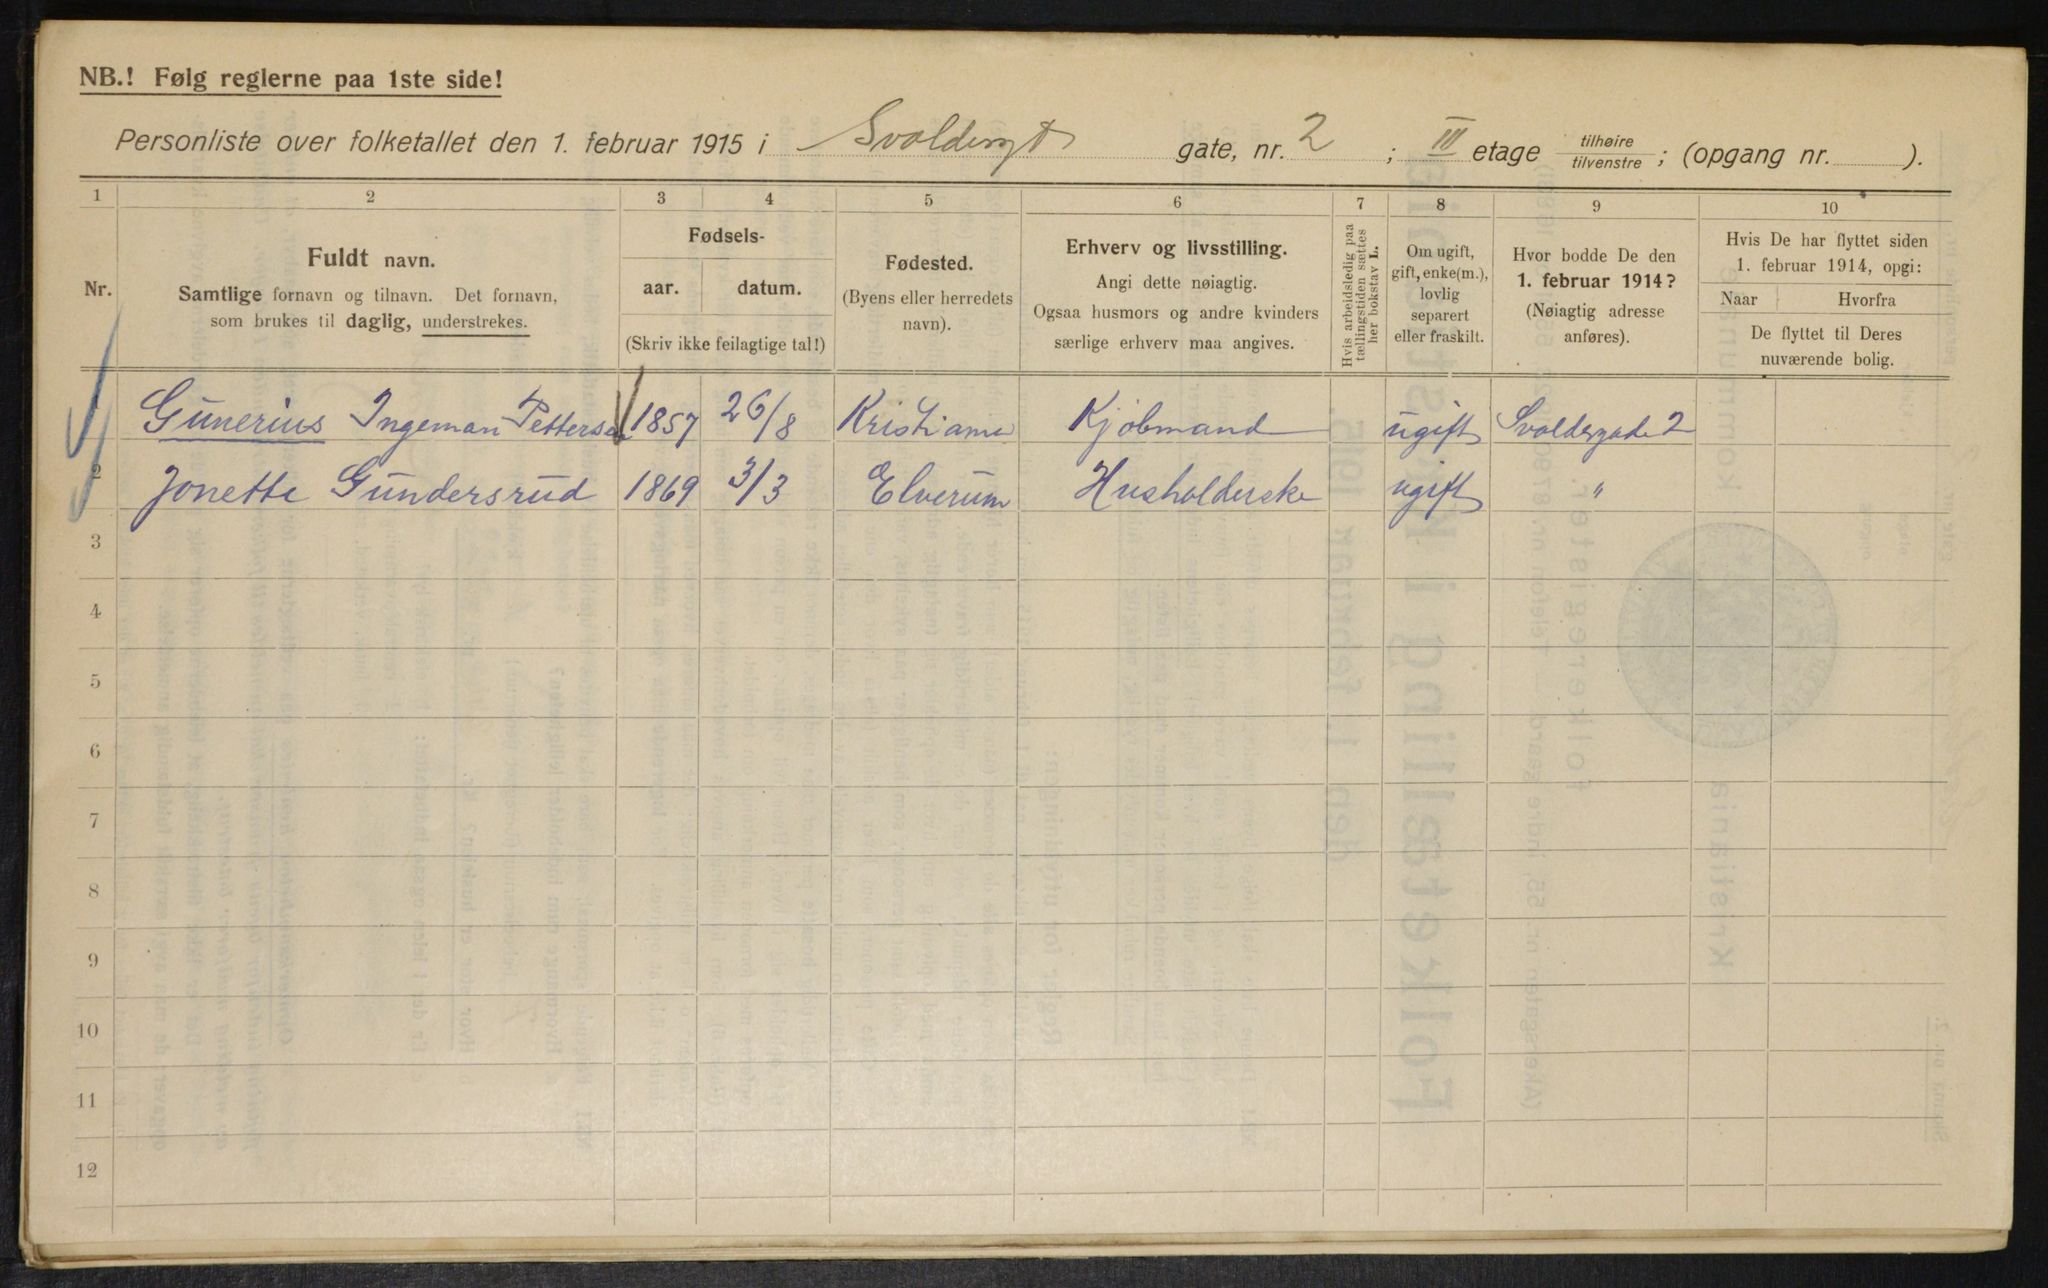 NB.! Følg reglerne paa 1ste side!
Personliste over folketallet den 1. februar 1915 i Svoldergt gate, nr. 2 ; III etage tilhøire tilvenstre ; (opgang nr. ).
1 2 3 4 5 6 7 8 9 10
Nr.
Fuldt navn.
Samtlige fornavn og tilnavn. Det fornavn,
som brukes til daglig, understrekes.
Fødsels-
aar. datum.
(Skriv ikke feilagtige tal!)
Fødested.
(Byens eller herredets
navn).
Erhverv og livsstilling.
Angi dette nøiagtig.
Ogsaa husmors og andre kvinders
særlige erhverv maa angives.
Hvis arbeidsledig paa
tællingstiden sættes
her bokstav L.
Om ugift,
gift, enke(m.),
lovlig
separert
eller fraskilt.
Hvor bodde De den
1. februar 1914?
(Nøiagtig adresse
anføres).
Hvis De har flyttet siden
1. februar 1914, opgi:
Naar Hvorfra
De flyttet til Deres
nuværende bolig.
Gunerius Ingeman Pettersen 1857 26/8 Kristiania Kjøbmand ugift Svoldergade 2
2 Jonette Gundersrud 1869 3/3 Elverum Husholderske ugift "
3
4
5
6
7
8
9
10
11
12